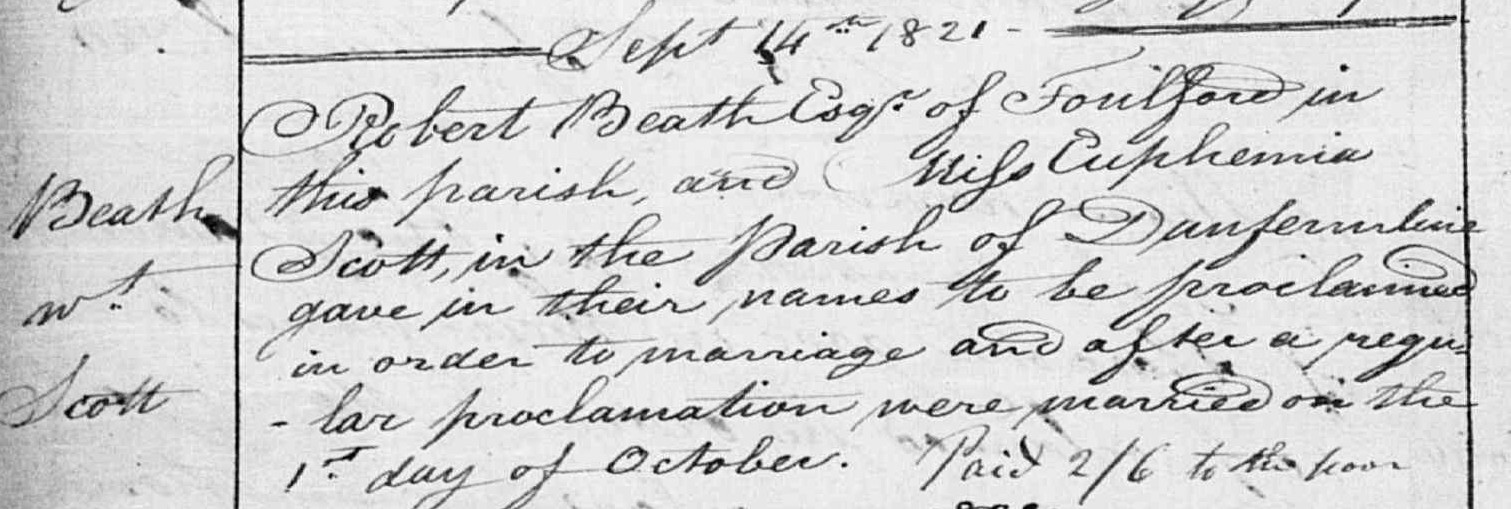 Sept 14th 1821 -
Robert Beath Esqr. of Foulford in
this parish, and Miss Euphemia
Beath
Scott, in the Parish of Dunfermline
gave in their names to be proclaimed
wt
in order to marriage and after a regu-
Scott
- lar proclamation were married on the
1st day of October. Paid 2/6 to the poor